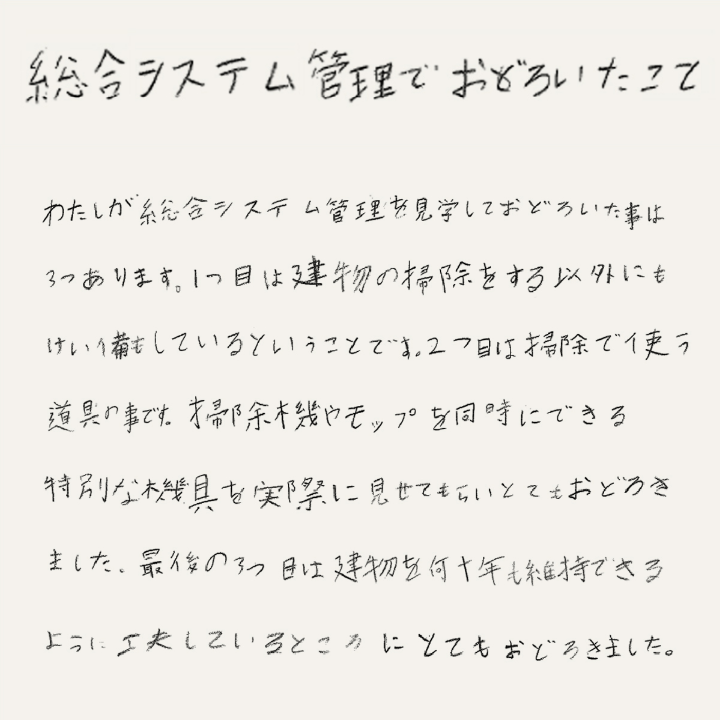 総合システム管理でおどろいたこと
わたしが総合システム管理を見学しておどろいた事は
3つあります。1つ目は建物の掃除をする以外にも
けい備もしているということです。2つ目は掃除で使う
道具の事です。掃除木機やモップを同時にできる
特別な木機具を実際に見せてもらいとてもおどろき
ました。最後の3つ目は建物を何十年も維持できる
ように工夫しているところにとてもおどろきました。